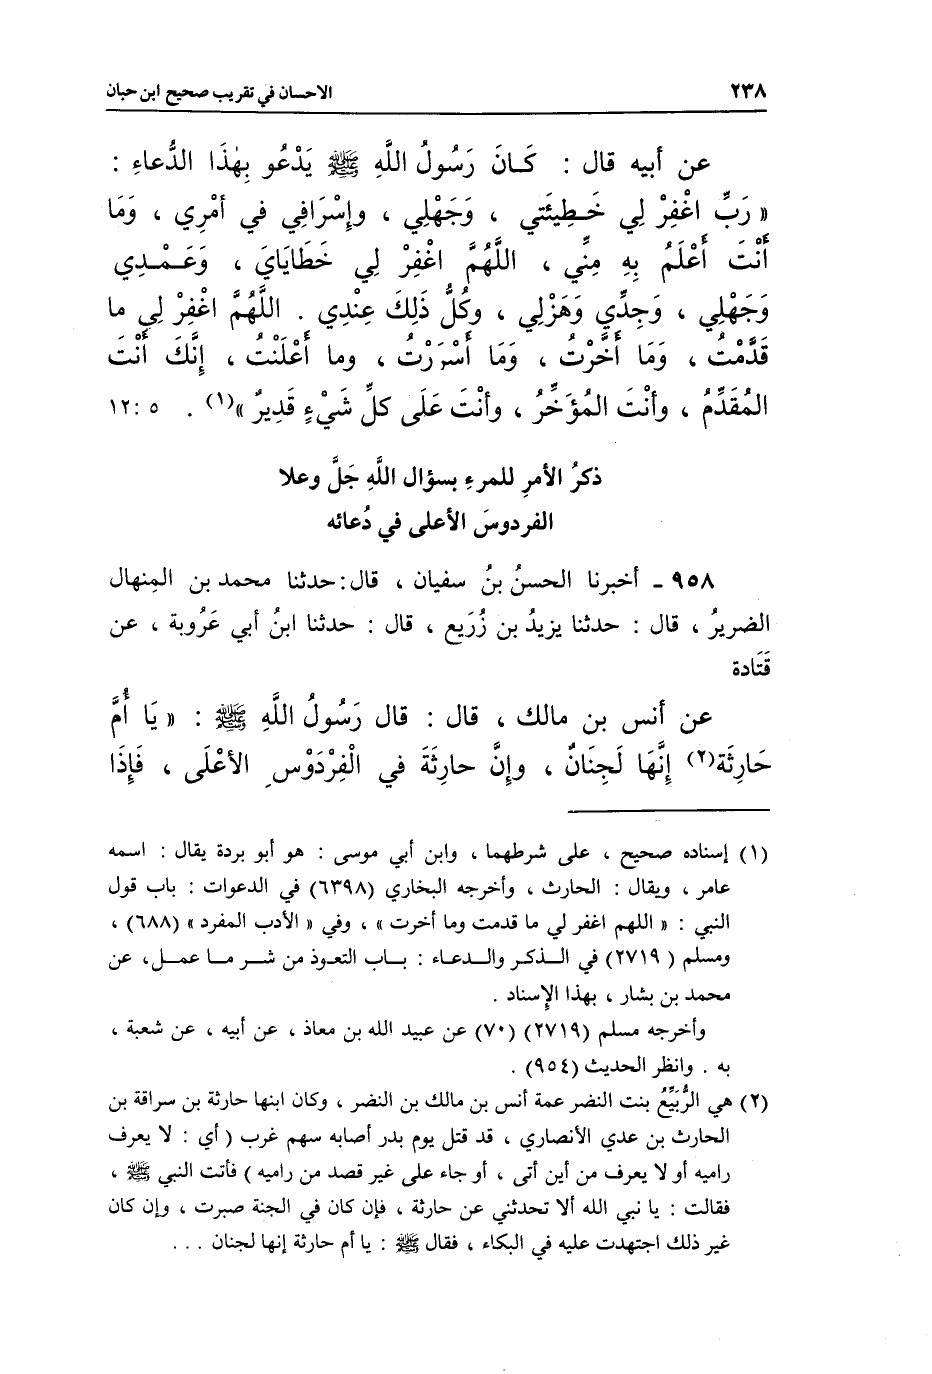 ٢٣٨ الاحسان في تقريب صحيح ابن حبان
عن أبيه قال : كَـانَ رَسُولُ اللَّهِ ﷺ يَدْعُو بِهٰذَا الدُّعاءِ :
« رَبِّ اغْفِرْ لِي خَـطِيئَتي ، وَجَهْلِي ، وإِسْرَافِي في أمْرِي ، وَمَا
أَنْتَ أَعْلَمُ بِهِ مِنِّي ، اللَّهُمَّ اغْفِرْ لِي خَطَايَايَ ، وَعَـمْـدِي
وَجَهْلِي ، وَجِدِّي وَهَزْلِي ، وكُلُّ ذَلِكَ عِنْدِي . اللَّهُمَّ اغْفِرْ لِي ما
قَدَّمْتُ ، وَمَا أَخَّرْتُ ، وَمَا أَسْرَرْتُ ، وما أَعْلَنْتُ ، إِنَّكَ أَنْتَ
المُقَدِّمُ ، وأنْتَ المُؤَخِّرُ ، وأنْتَ عَلَى كلِّ شَيْءٍ قَدِيرٌ »(١) . ٥ :١٢
ذكرُ الأمرِ للمرءِ بسؤال اللَّهِ جَلَّ وعلا
الفردوسَ الأعلى في دُعائه
٩٥٨ ـ أخبرنا الحسنُ بنُ سفيان ، قال: حدثنا محمد بن المِنهال
الضريرُ ، قال : حدثنا يزيدُ بن زُرَيع ، قال : حدثنا ابنُ أبي عَرُوبة ، عن
قَتَادة
عن أنس بن مالك ، قال : قال رَسُولُ اللَّهِ ﷺ : « يَا أُمَّ
حَارِثَة(٢) إِنَّهَا لَجِنَانٌ ، وإِنَّ حارِثَةَ في الْفِرْدَوْسِ الأعْلَى ، فَإِذَا
(١) إسناده صحيح ، على شرطهما ، وابن أبي موسى : هو أبو بردة يقال : اسمه
عامر ، ويقال : الحارث ، وأخرجه البخاري (٦٣٩٨) في الدعوات : باب قول
النبي : « اللهم اغفر لي ما قدمت وما أخرت » ، وفي « الأدب المفرد » (٦٨٨) ،
ومسلم ( ٢٧١٩) في الـذكـر والـدعـاء : بـاب التعـوذ من شـر مـا عمـل، عن
محمد بن بشار ، بهذا الإسناد .
وأخرجه مسلم (٢٧١٩) (٧٠) عن عبيد الله بن معاذ ، عن أبيه ، عن شعبة ،
به . وانظر الحديث (٩٥٤) .
(٢) هي الرُّبَيِّعُ بنت النضر عمة أنس بن مالك بن النضر ، وكان ابنها حارثة بن سراقة بن
الحارث بن عدي الأنصاري ، قد قتل يوم بدر أصابه سهم غرب ( أي : لا يعرف
راميه أو لا يعرف من أين أتى ، أو جاء على غير قصد من راميه ) فأتت النبي ﷺ ،
فقالت : يا نبي الله ألا تحدثني عن حارثة ، فإن كان في الجنة صبرت ، وإن كان
غير ذلك اجتهدت عليه في البكاء ، فقال ﷺ : يا أم حارثة إنها لجنان . . .